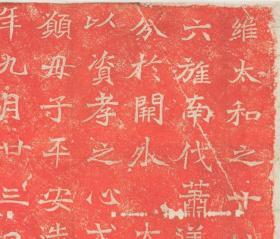 維太和之十
六旌南代蕭
兮於開外太
以資孝之心
願毋子平安造
年九月廿三